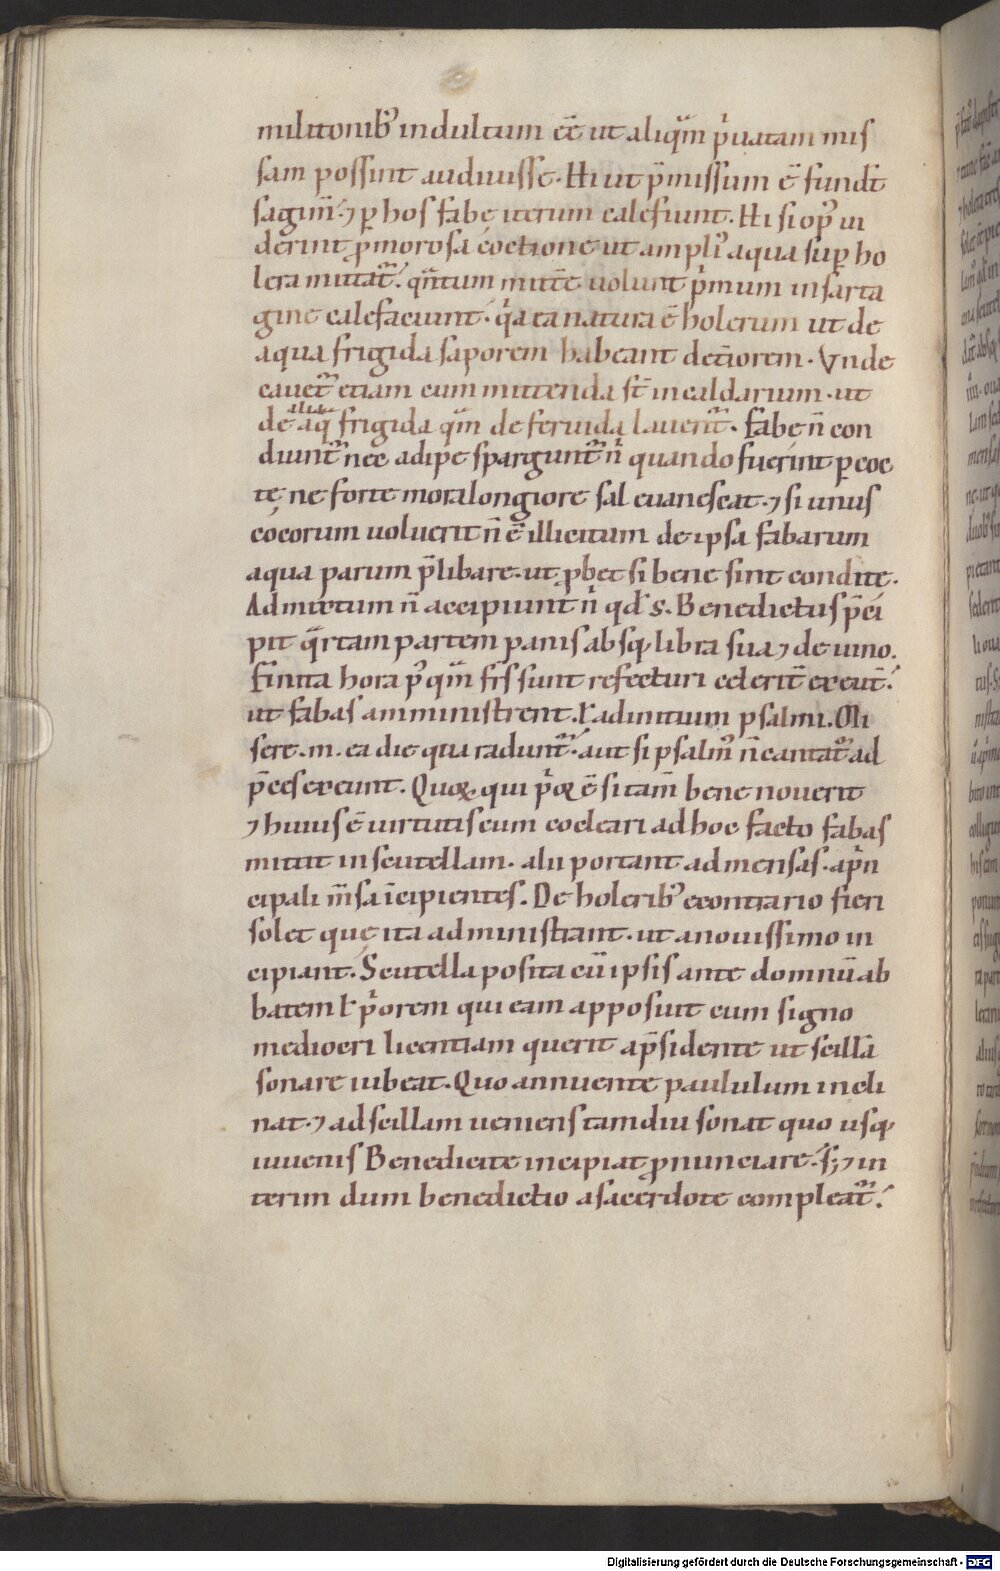 militorib᷒ indultum ee᷒ ut aliqͣm pͥuatam mis
sam possint audiuisse. Hi ut p̄missum ē fundt̄
sagim̄. ⁊ ꝑ hos fabę iterum calefiunt. Hi si op᷒ ui
derint ꝓmorosa coctione ut ampli᷒ aqua suꝑ ho
lera mittat᷑. qn̄tum mitt̄e uolunt pͥmum in sarta
gine calefaciunt. qͥa ea natura ē holerum ut de
aqua frigida saporem habeant det̄iorem. Vnde
cauet᷑ etiam cum mittenda st̄ in caldarium. ut
de aliqͣ frigida qͣm de feruida lauent᷑. Fabę n̄ con
diunt᷑ nec adipe spargunt᷑ nͥ quando fuerint ꝑcoc
tę ne forte mora longiore sal euanescat. ⁊ si unus
cocorum uoluerit n̄ ē illicitum de ipsa fabarum
aqua parum p̄libare. ut ꝓbet si bene sint condite.
Ad mixtum n̄ accipiunt nͥ qd̄ s. Benedictus p̄ci
pit qͣrtam partem panis absq; libra sua ⁊ de uino.
Finita hora p᷒ qͣm frs̄ sunt refecturi celerit᷑ exeunt᷑.
ut fabas amministrent. ł ad initium psalmi. Mi
sere. m. ea die qua radunt᷑. aut si psalm᷒ n̄ cantat᷑ ad
p̄ces exeunt. Quoꝝ qui pͥor ē si tam̄ bene nouerit
⁊ huius ē uirtutis cum cocleari ad hoc facto fabas
mittit in scutellam. alii portant ad mensas. a pͥn
cipali m̄sa īcipientes. De holerib᷒ econtrario fieri
solet quę ita administrant. ut a nouissimo in
cipiant. Scutella posita cū ipsis ante domnū ab
batem ł pͥorem qui eam apposuit cum signo
mediocri licentiam querit a p̄sidente ut scillā
sonare iubeat. Quo annuente paululum incli
nat. ⁊ ad scillam ueniens tamdiu sonat quo usq;
iuuenis Benedicite incipiat ꝓnunciare. s; ⁊ in
terim dum benedictio a sacerdote compleat᷑.
Digitalisierung gefördert durch die Deutsche Forschungsgemeinschaft - DFG